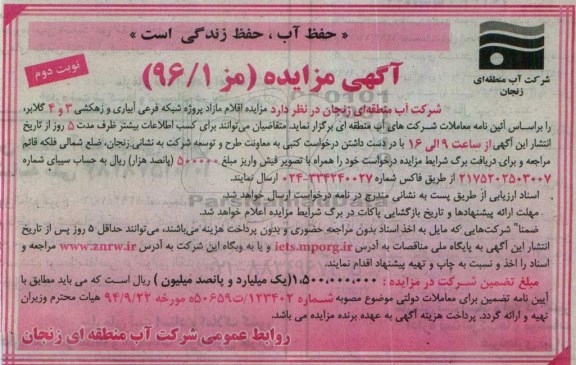 « حفظ آب ، حفظ زندگی است »
شرکت آب منطقه‌ای
زنجان
نوبت دوم
آگهی مزایده (مز ۹۶/۱)
شرکت آب منطقه‌ای زنجان در نظر دارد مزایده اقلام مازاد پروژه شبکه فرعی آبیاری و زهکشی ۳ و ۴ گلابر،
را براساس آئین نامه معاملات شرکت های آب منطقه ای برگزار نماید. متقاضیان می‌توانند برای کسب اطلاعات بیشتر ظرف مدت ۵ روز از تاریخ
انتشار این آگهی از ساعت ۹ الی ۱۶ با در دست داشتن درخواست کتبی به معاونت طرح و توسعه شرکت به نشانی زنجان، ضلع شمالی فلکه قائم
مراجعه و برای دریافت برگ شرایط مزایده درخواست خود را همراه با تصویر فیش واریز مبلغ ۵۰۰۰۰۰ (پانصد هزار) ریال به حساب سیبای شماره
۲۱۷۵۲۰۲۵۰۳۰۰۷ از طریق فاکس شماره ۳۳۴۲۴۰۰۲۷-۰۲۴ ارسال نمایند.
اسناد ارزیابی از طریق پست به نشانی مندرج در نامه درخواست ارسال خواهد شد.
مهلت ارائه پیشنهادها و تاریخ بازگشایی پاکات در برگ شرایط مزایده اعلام خواهد شد.
ضمنا" شرکت‌هایی که مایل به اخذ اسناد بدون مراجعه حضوری و بدون پرداخت هزینه می‌باشند، می‌توانند حداقل ۵ روز پس از تاریخ
انتشار این آگهی به پایگاه ملی مناقصات به آدرس iets.mporg.ir و یا به وبگاه این شرکت به آدرس www.znrw.ir مراجعه و
اسناد را اخذ و نسبت به چاپ و تهیه پیشنهاد اقدام نمایند.
مبلغ تضمین شرکت در مزایده : ۱،۵۰۰،۰۰۰،۰۰۰(یک میلیارد و پانصد میلیون ) ریال است که می باید مطابق با
آیین نامه تضمین برای معاملات دولتی موضوع مصوبه شماره ۱۲۳۴۰۲/ت۵۰۶۵۹ه مورخه ۹۴/۹/۲۲ هیات محترم وزیران
تهیه و ارائه گردد. پرداخت هزینه آگهی به عهده برنده مزایده می باشد.
روابط عمومی شرکت آب منطقه ای زنجان